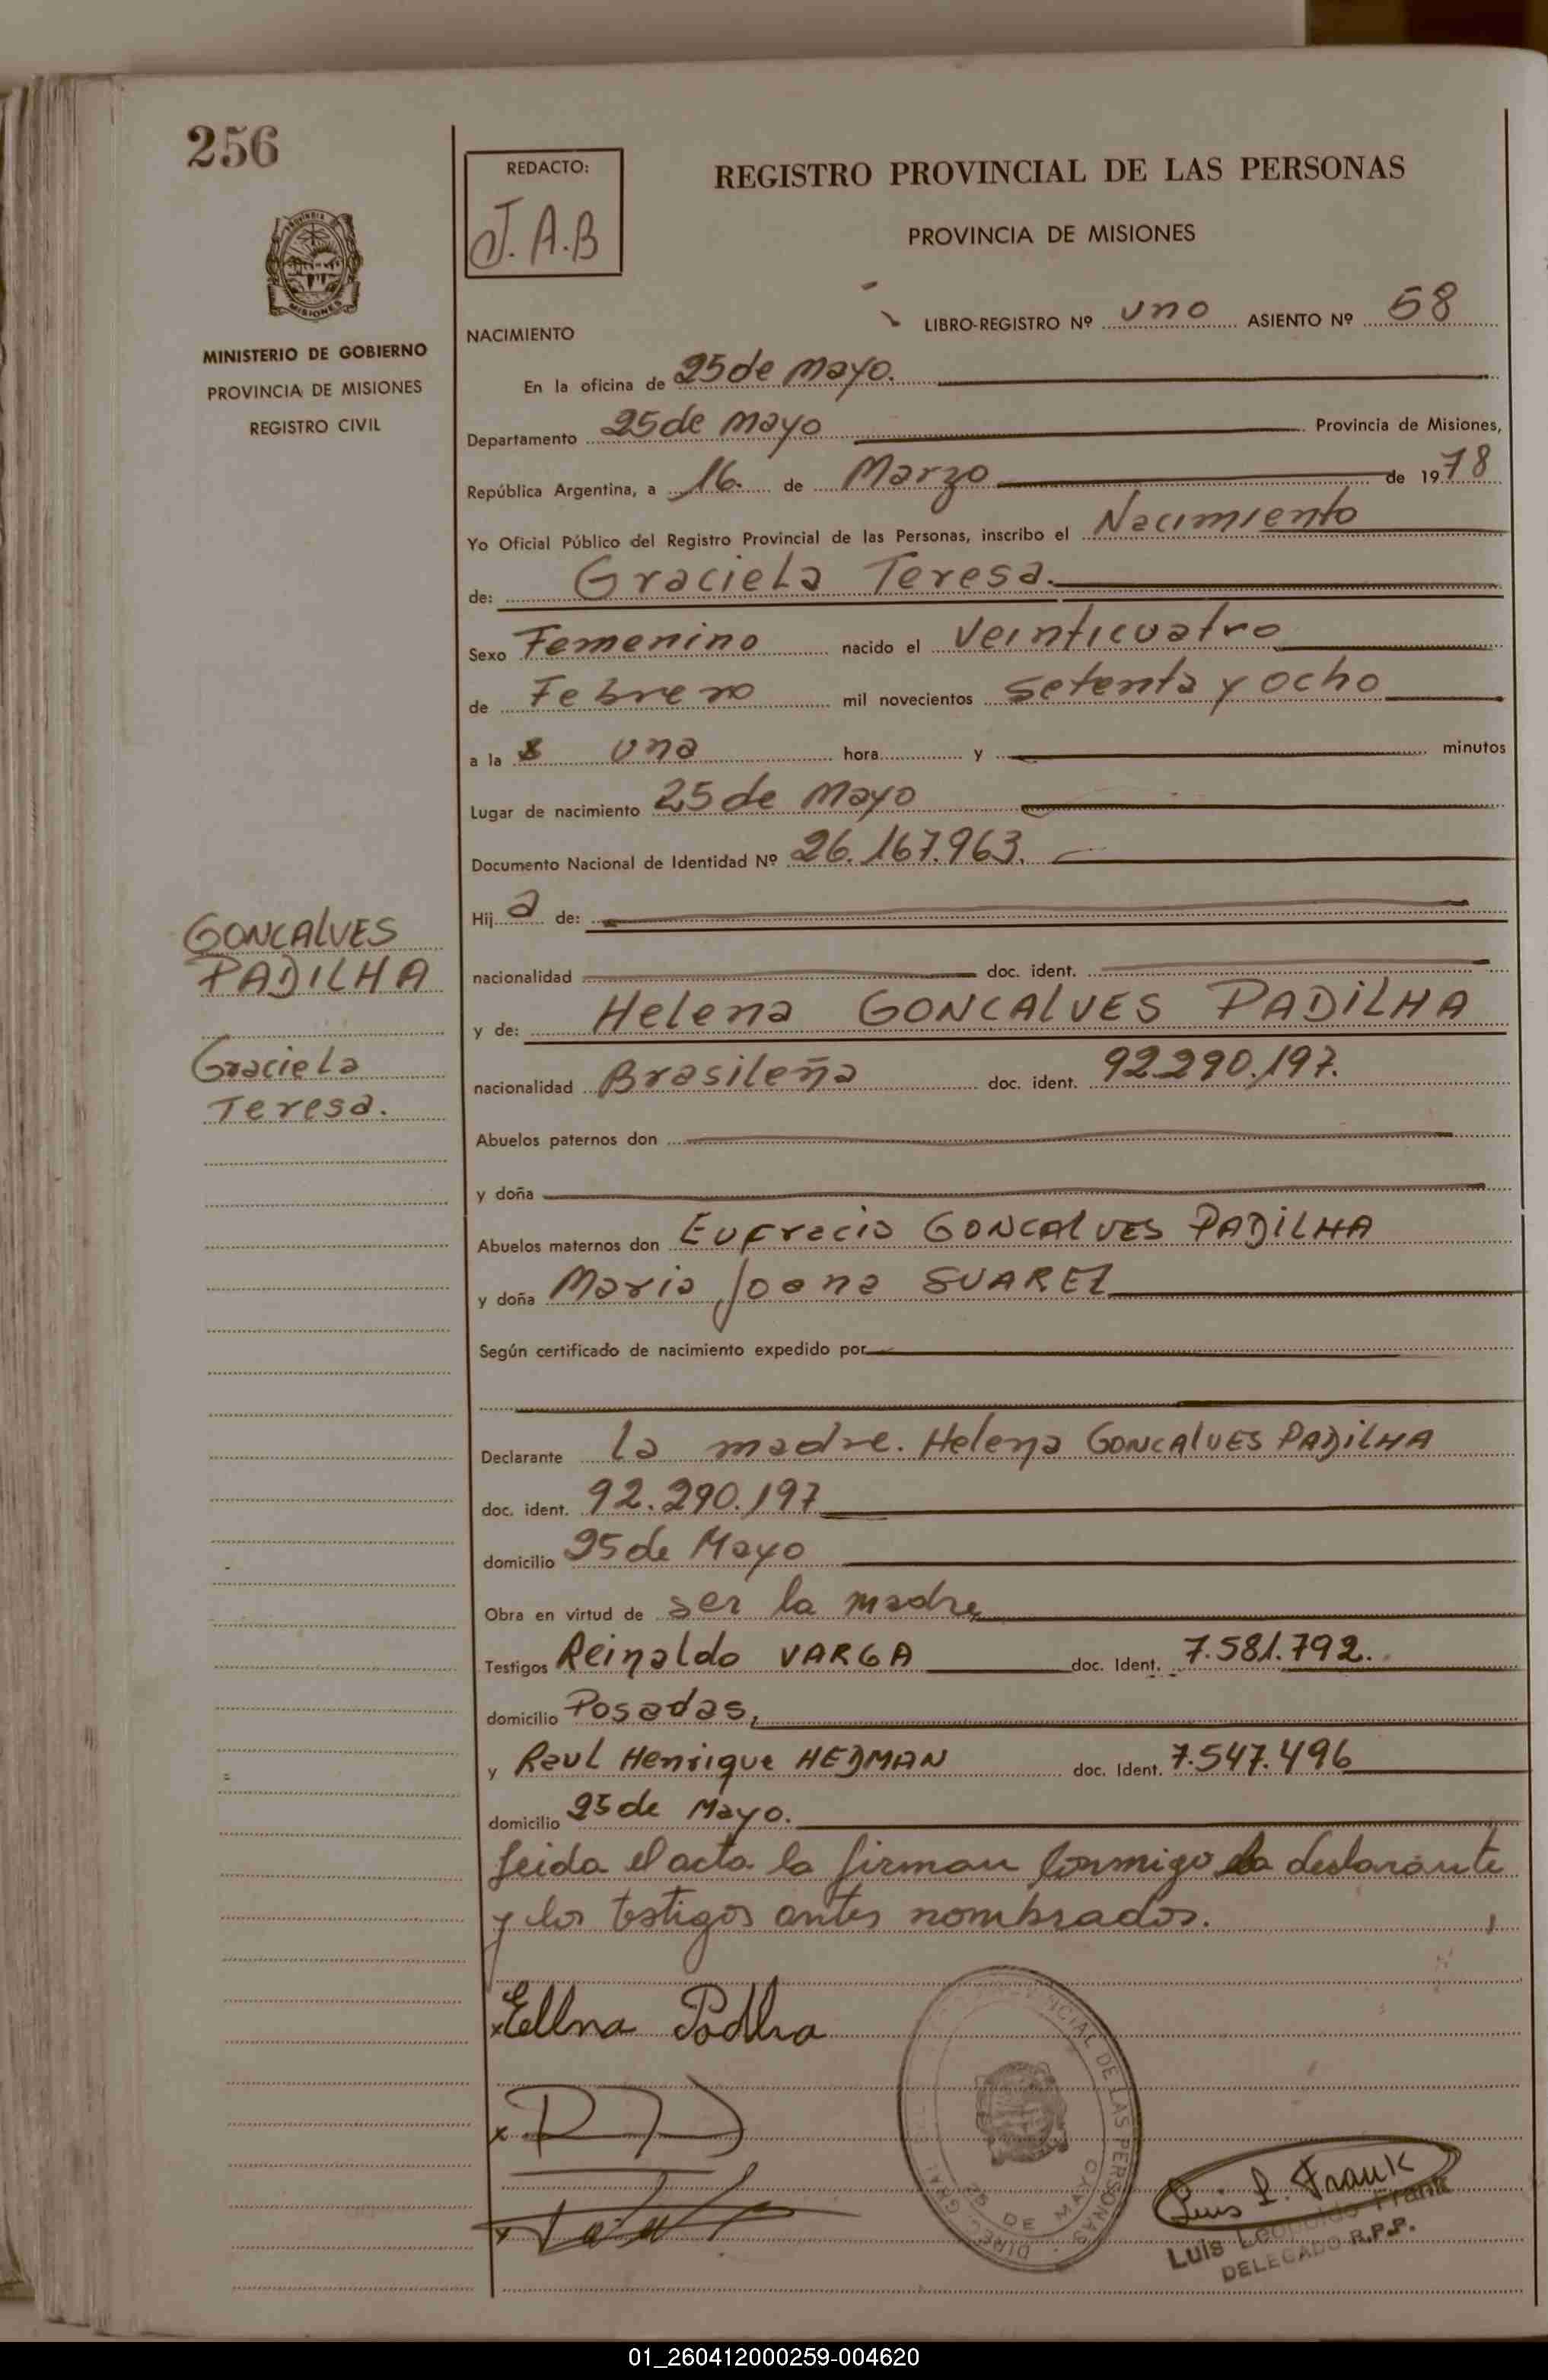 256
REDACTO:
J.A.B
REGISTRO PROVINCIAL DE LAS PERSONAS
PROVINCIA DE MISIONES
MISIONES
MINISTERIO DE GOBIERNO
PROVINCIA DE MISIONES
REGISTRO CIVIL
NACIMIENTO
LIBRO-REGISTRO Nº uno ASIENTO Nº 58
En la oficina de 25 de Mayo.
Departamento 25 de Mayo Provincia de Misiones,
República Argentina, a 16. de Marzo de 1978
Yo Oficial Público del Registro Provincial de las Personas, inscribo el Nacimiento
de: Graciela Teresa.
Sexo Femenino nacido el Veinticuatro
de Febrero mil novecientos setenta y ocho
a la una hora y minutos
Lugar de nacimiento 25 de Mayo
Documento Nacional de Identidad Nº 26.167.963.
Hij a de:
nacionalidad doc. ident.
y de: Helena GONCALVES PADILHA
nacionalidad Brasileña doc. ident. 92.290.197.
Abuelos paternos don
y doña
Abuelos maternos don Eufracio GONCALVES PADILHA
y doña Maria Joana SUAREZ
Según certificado de nacimiento expedido por
Declarante la madre. Helena GONCALVES PADILHA
doc. ident. 92.290.197
domicilio 25 de Mayo
Obra en virtud de ser la madre
Testigos Reinaldo VARGA doc. Ident. 7.581.792.
domicilio Posadas,
y Raul Henrique HEDMAN doc. Ident. 7.547.496
domicilio 25 de Mayo.
Leida el acta la firman conmigo la declarante
y los testigos antes nombrados.
GONCALVES
PADILHA
Graciela
Teresa.
Ellna Padlha
DIREC. GRAL. DEL VINCIAL DE LAS PERSONAS
25 DE MAYO
Luis L. Frank
Luis Leopoldo Frank
DELEGADO R.P.P.
01_260412000259-004620